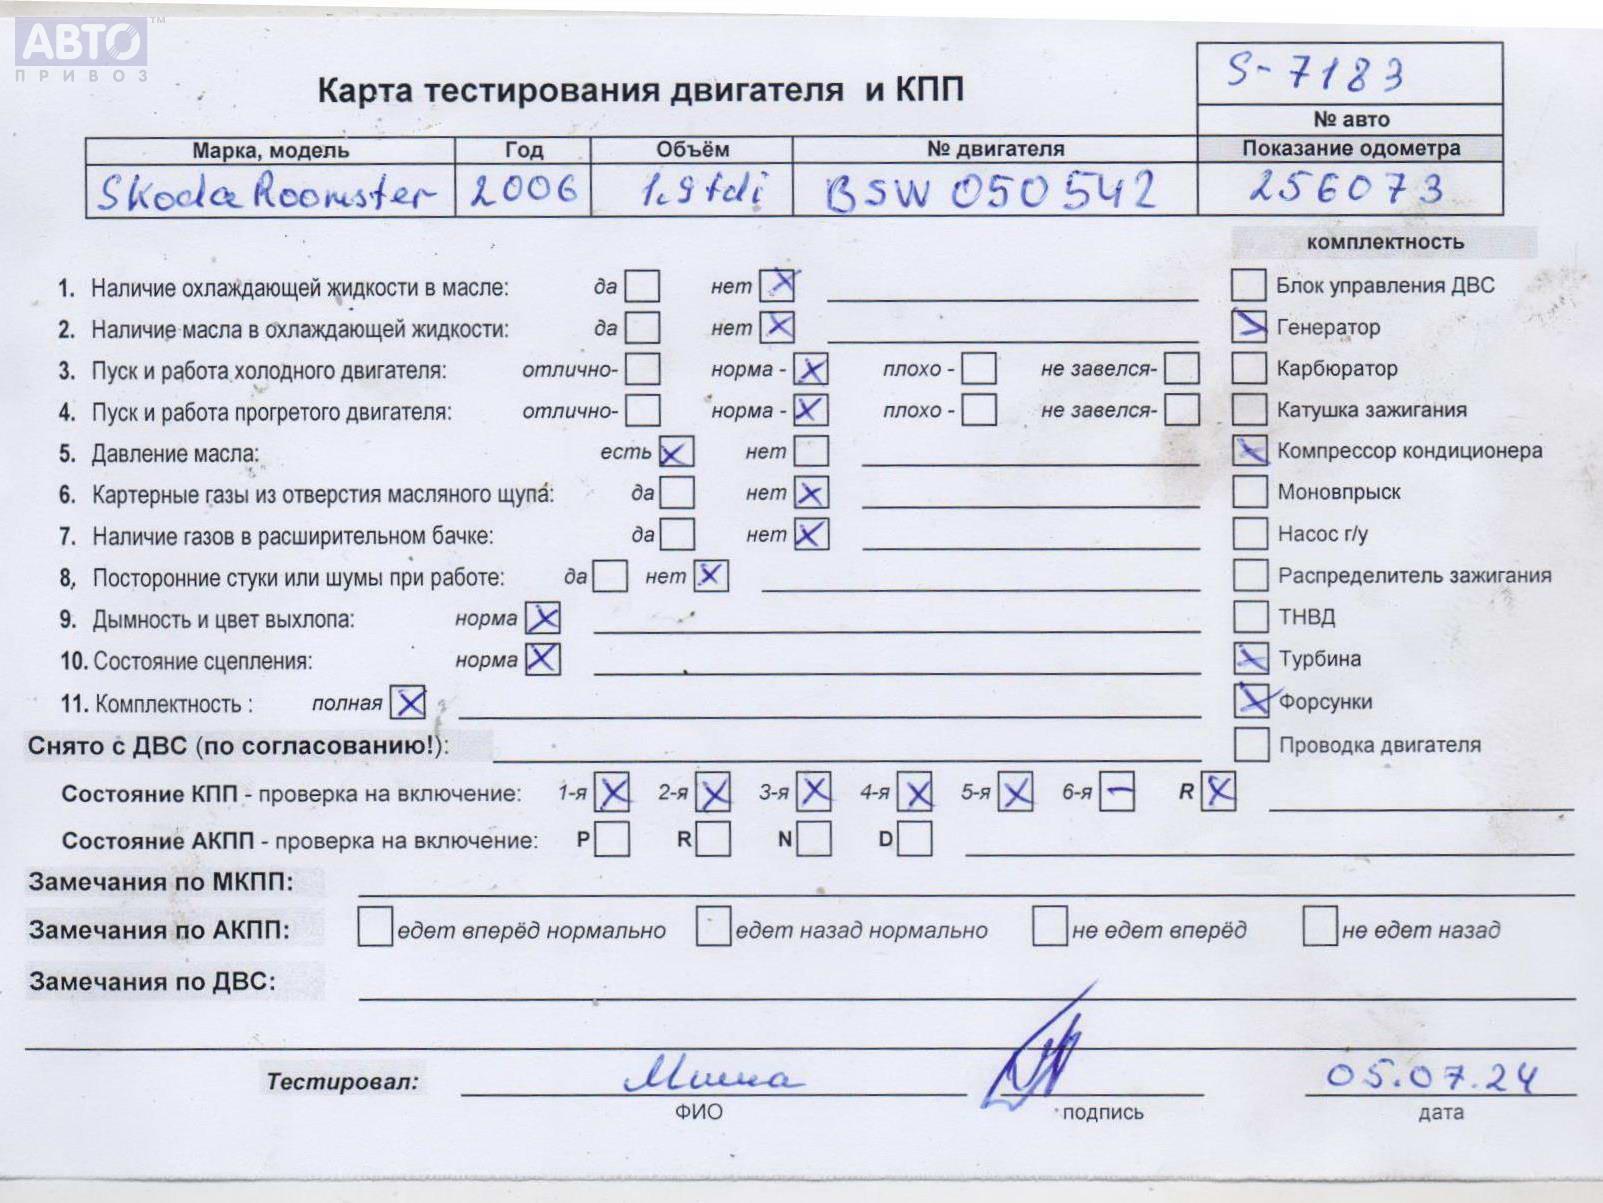 АВТО™
ПРИВОЗ
S-7183
Карта тестирования двигателя и КПП
№ авто
Марка, модель Год Объём № двигателя Показание одометра
Skoda Roomster 2006 1.9 tdi BSW 050542 256073
комплектность
1. Наличие охлаждающей жидкости в масле: да нет X Блок управления ДВС
2. Наличие масла в охлаждающей жидкости: да нет X Генератор
3. Пуск и работа холодного двигателя: отлично- норма - X плохо - не завелся- Карбюратор
4. Пуск и работа прогретого двигателя: отлично- норма - X плохо - не завелся- Катушка зажигания
5. Давление масла: есть X нет X Компрессор кондиционера
6. Картерные газы из отверстия масляного щупа: да нет X Моновпрыск
7. Наличие газов в расширительном бачке: да нет X Насос г/у
8, Посторонние стуки или шумы при работе: да нет X Распределитель зажигания
9. Дымность и цвет выхлопа: норма X ТНВД
10. Состояние сцепления: норма X X Турбина
11. Комплектность : полная X X Форсунки
Снято с ДВС (по согласованию!): Проводка двигателя
Состояние КПП - проверка на включение: 1-я X 2-я X 3-я X 4-я X 5-я X 6-я – R X
Состояние АКПП - проверка на включение: P R N D
Замечания по МКПП:
Замечания по АКПП: едет вперёд нормально едет назад нормально не едет вперёд не едет назад
Замечания по ДВС:
Тестировал: Миша 05.07.24
ФИО подпись дата